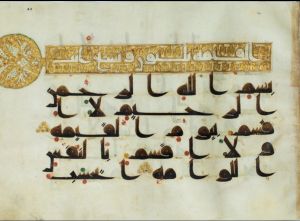 القيمة
بسم الله الرحمن
الرحيم لا ا
قسم بيوم القيمة
و لا اقسم بالنفس
اللوامة ا يحسب